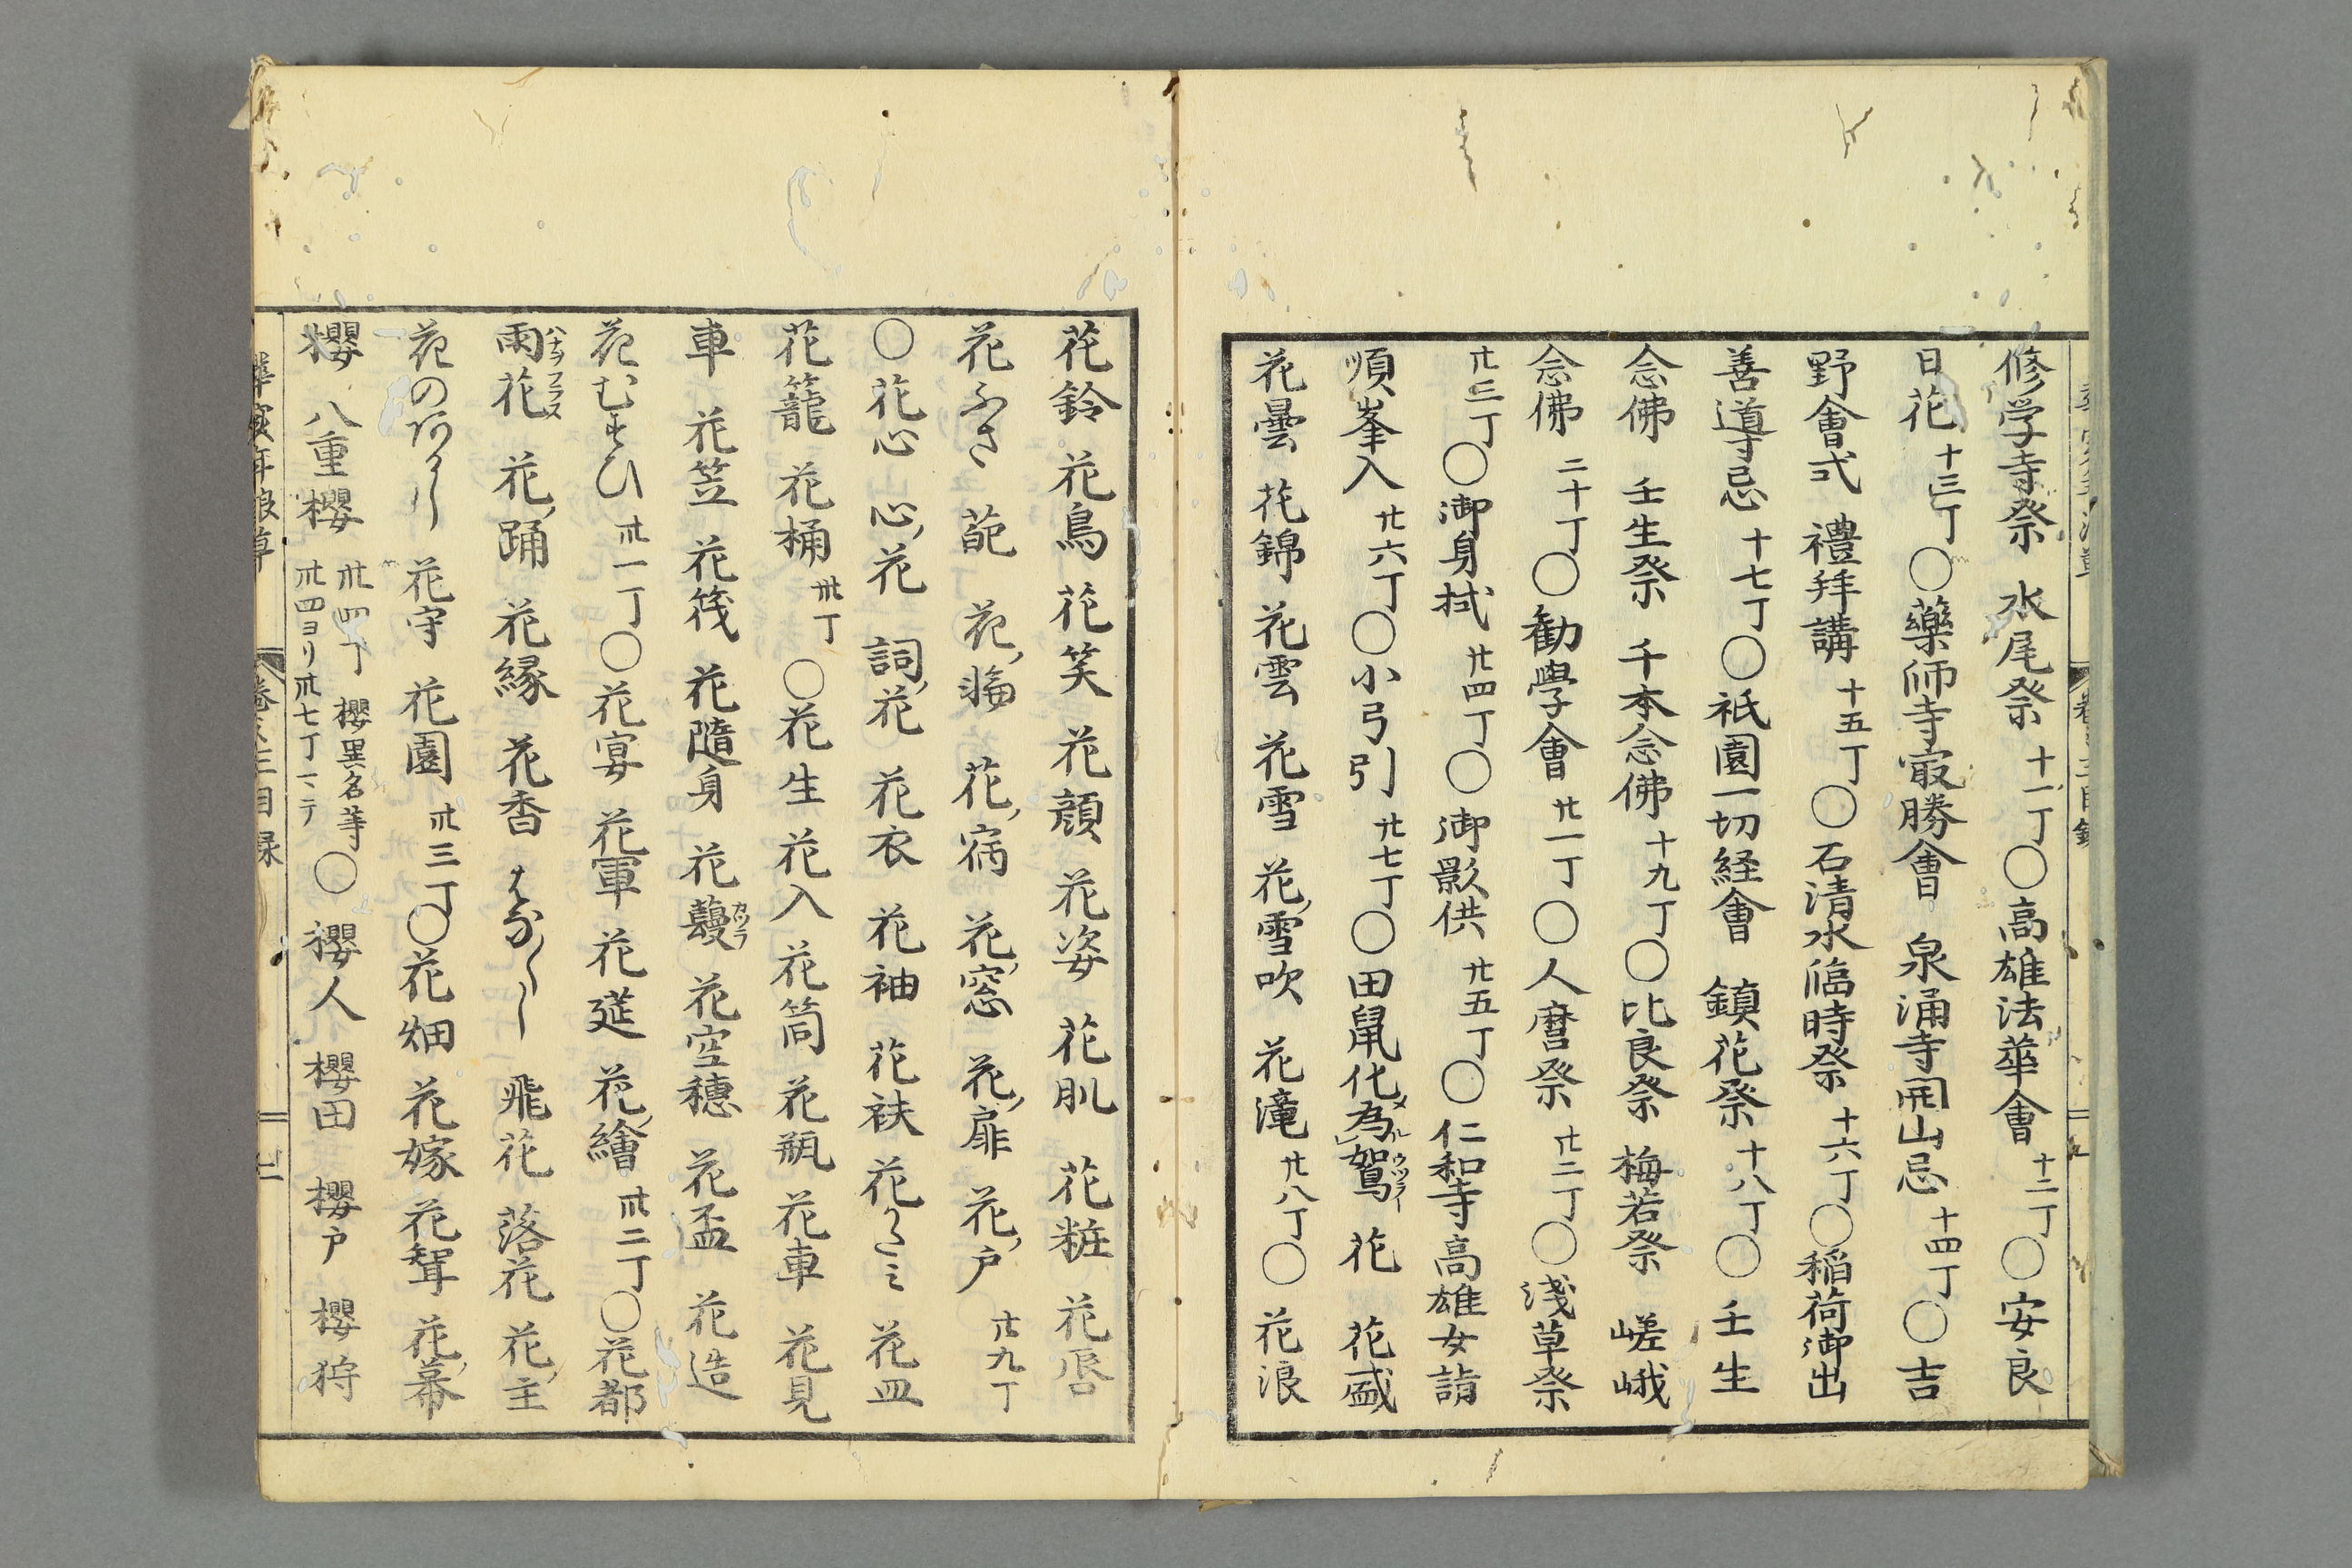 修学寺祭 水尾祭 十一丁〇高雄法華會 十二丁〇安良
日花 十三丁〇藥師寺最勝會 泉涌寺開山忌 十四丁〇吉
野會式 禮拜講 十五丁〇石清水臨時祭 十六丁〇稲荷御出
善導忌 十七丁〇祇園一切経會 鎮花祭 十八丁〇壬生
念佛 壬生祭 千本念佛 十九丁〇比良祭 梅若祭 嵯峨
念佛 二十丁〇勧學會 廿一丁〇人麿祭 廿二丁〇淺草祭
廿三丁〇御身拭 廿四丁〇御影供 廿五丁〇仁和寺高雄女詣
順峯入 廿六丁〇小弓引 廿七丁〇田鼠化為鴽 花 花盛
花曇 花錦 花雲 花雪 花ノ雪吹 花滝 廿八丁〇花浪
花鈴 花鳥 花笑 花顔 花姿 花肌 花粧 花唇
花ふさ 葩 花ノ 花ノ 花ノ窓 花ノ扉 花ノ戸 廿九丁
〇花心 心ノ花 詞ノ花 花衣 花袖 花袂 花くくミ 花皿
花籠 花桶 丗丁〇花生 花入 花筒 花瓶 花車 花見
車 花笠 花筏 花隨身 花鬘カツラ 花空穂 花盃 花造
花むすひ 丗一丁〇花宴 花軍 花莚 花ノ繪 丗二丁〇花都
雨花ハナヲフラス 花ノ踊 花縁 花香 飛花 落花 花ノ主
花の 花守 花園 丗三丁〇花畑 花嫁 花聟 花ノ幕
櫻 八重櫻 丗四丁 櫻異名等 丗四ヨリ丗七丁マテ〇櫻人 櫻田 櫻戸 櫻狩